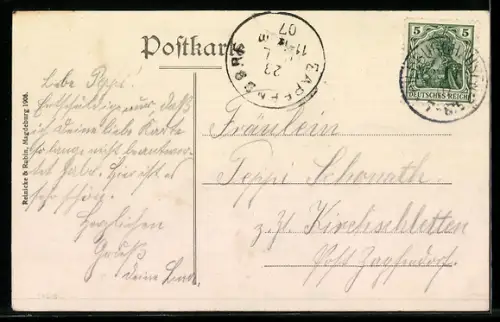 Postkarte
ZAPFENDORF
23
11
07
5
DEUTSCHES REICH
Reinicke & Rubin, Magdeburg 1906.
Liebe Peppi!
Entschuldige nur, daß
ich deine liebe Karte
so lange nicht beantwor-
tet habe. Hier ist es
sehr schön.
Herzlichen
Gruß
deine
Fräulein
Peppi Schonath
z. Zt. Kirchschletten
Post Zapfendorf.